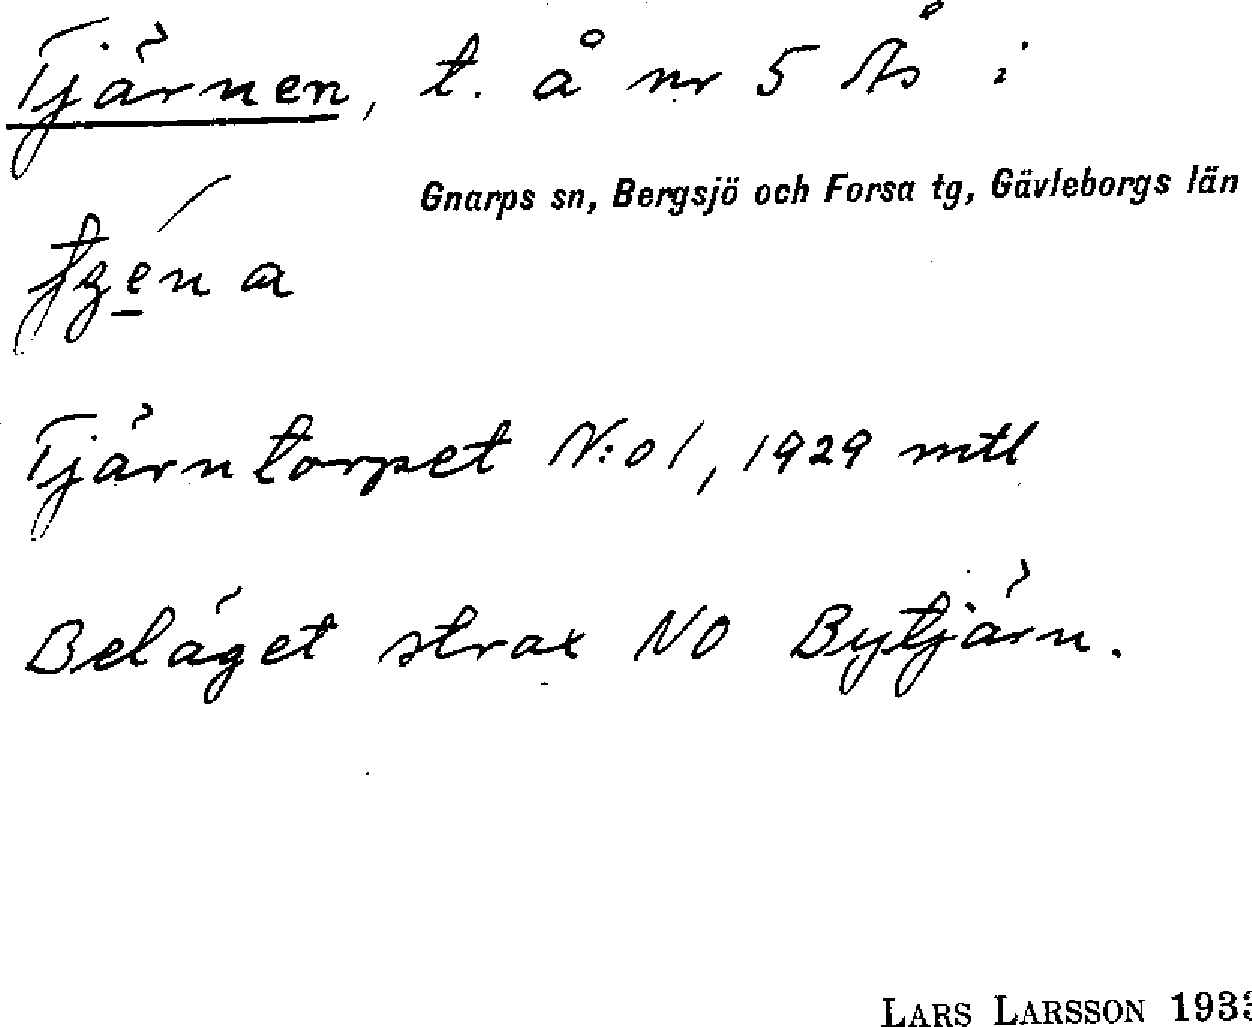 Tjärnen, t. å nr 5 Ås i
Gnarps sn, Bergsjö och Forsa tg, Gävleborgs län
Tjärntorpet N:o 1, 1929 mtl
Beläget strax NO Bytjärn.
LARS LARSSON 193